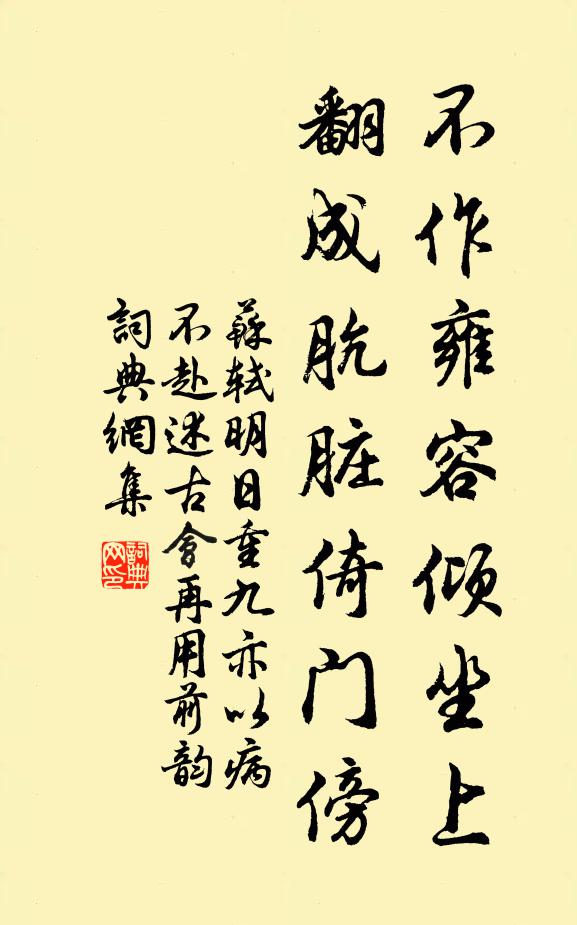 不作雍容傾坐上
翻成肮脏倚门傍
蘇軾明日重九亦以病
不赴述古會再用前韵
詞典網集
詞典网印